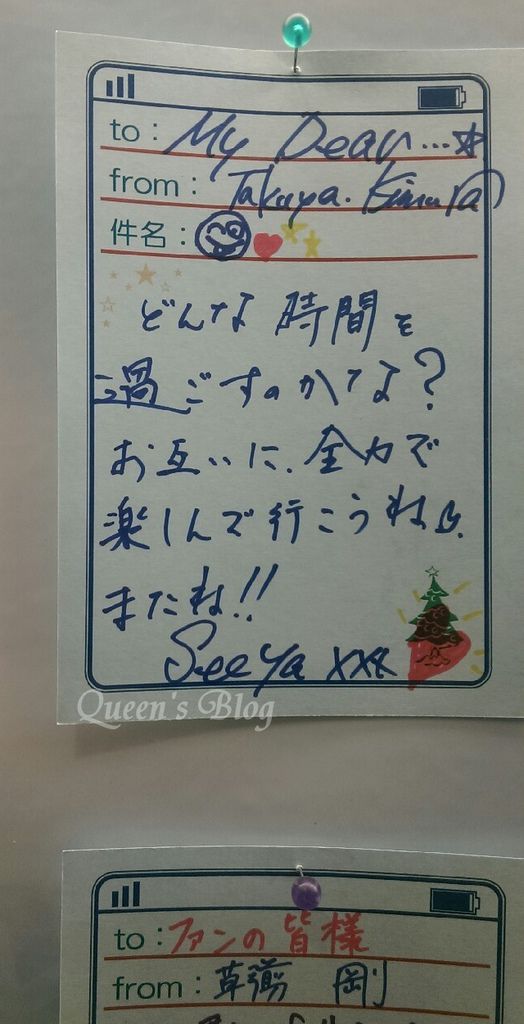 to : My Dear...☆
from : Takuya. Kimura
件名 :
どんな 時間を
過ごすのかなぁ?
お互いに、全力で
楽しんで行こうね
またね!!
See Ya xxx
Queen's Blog
to : ファンの皆様
from : 草彅 剛